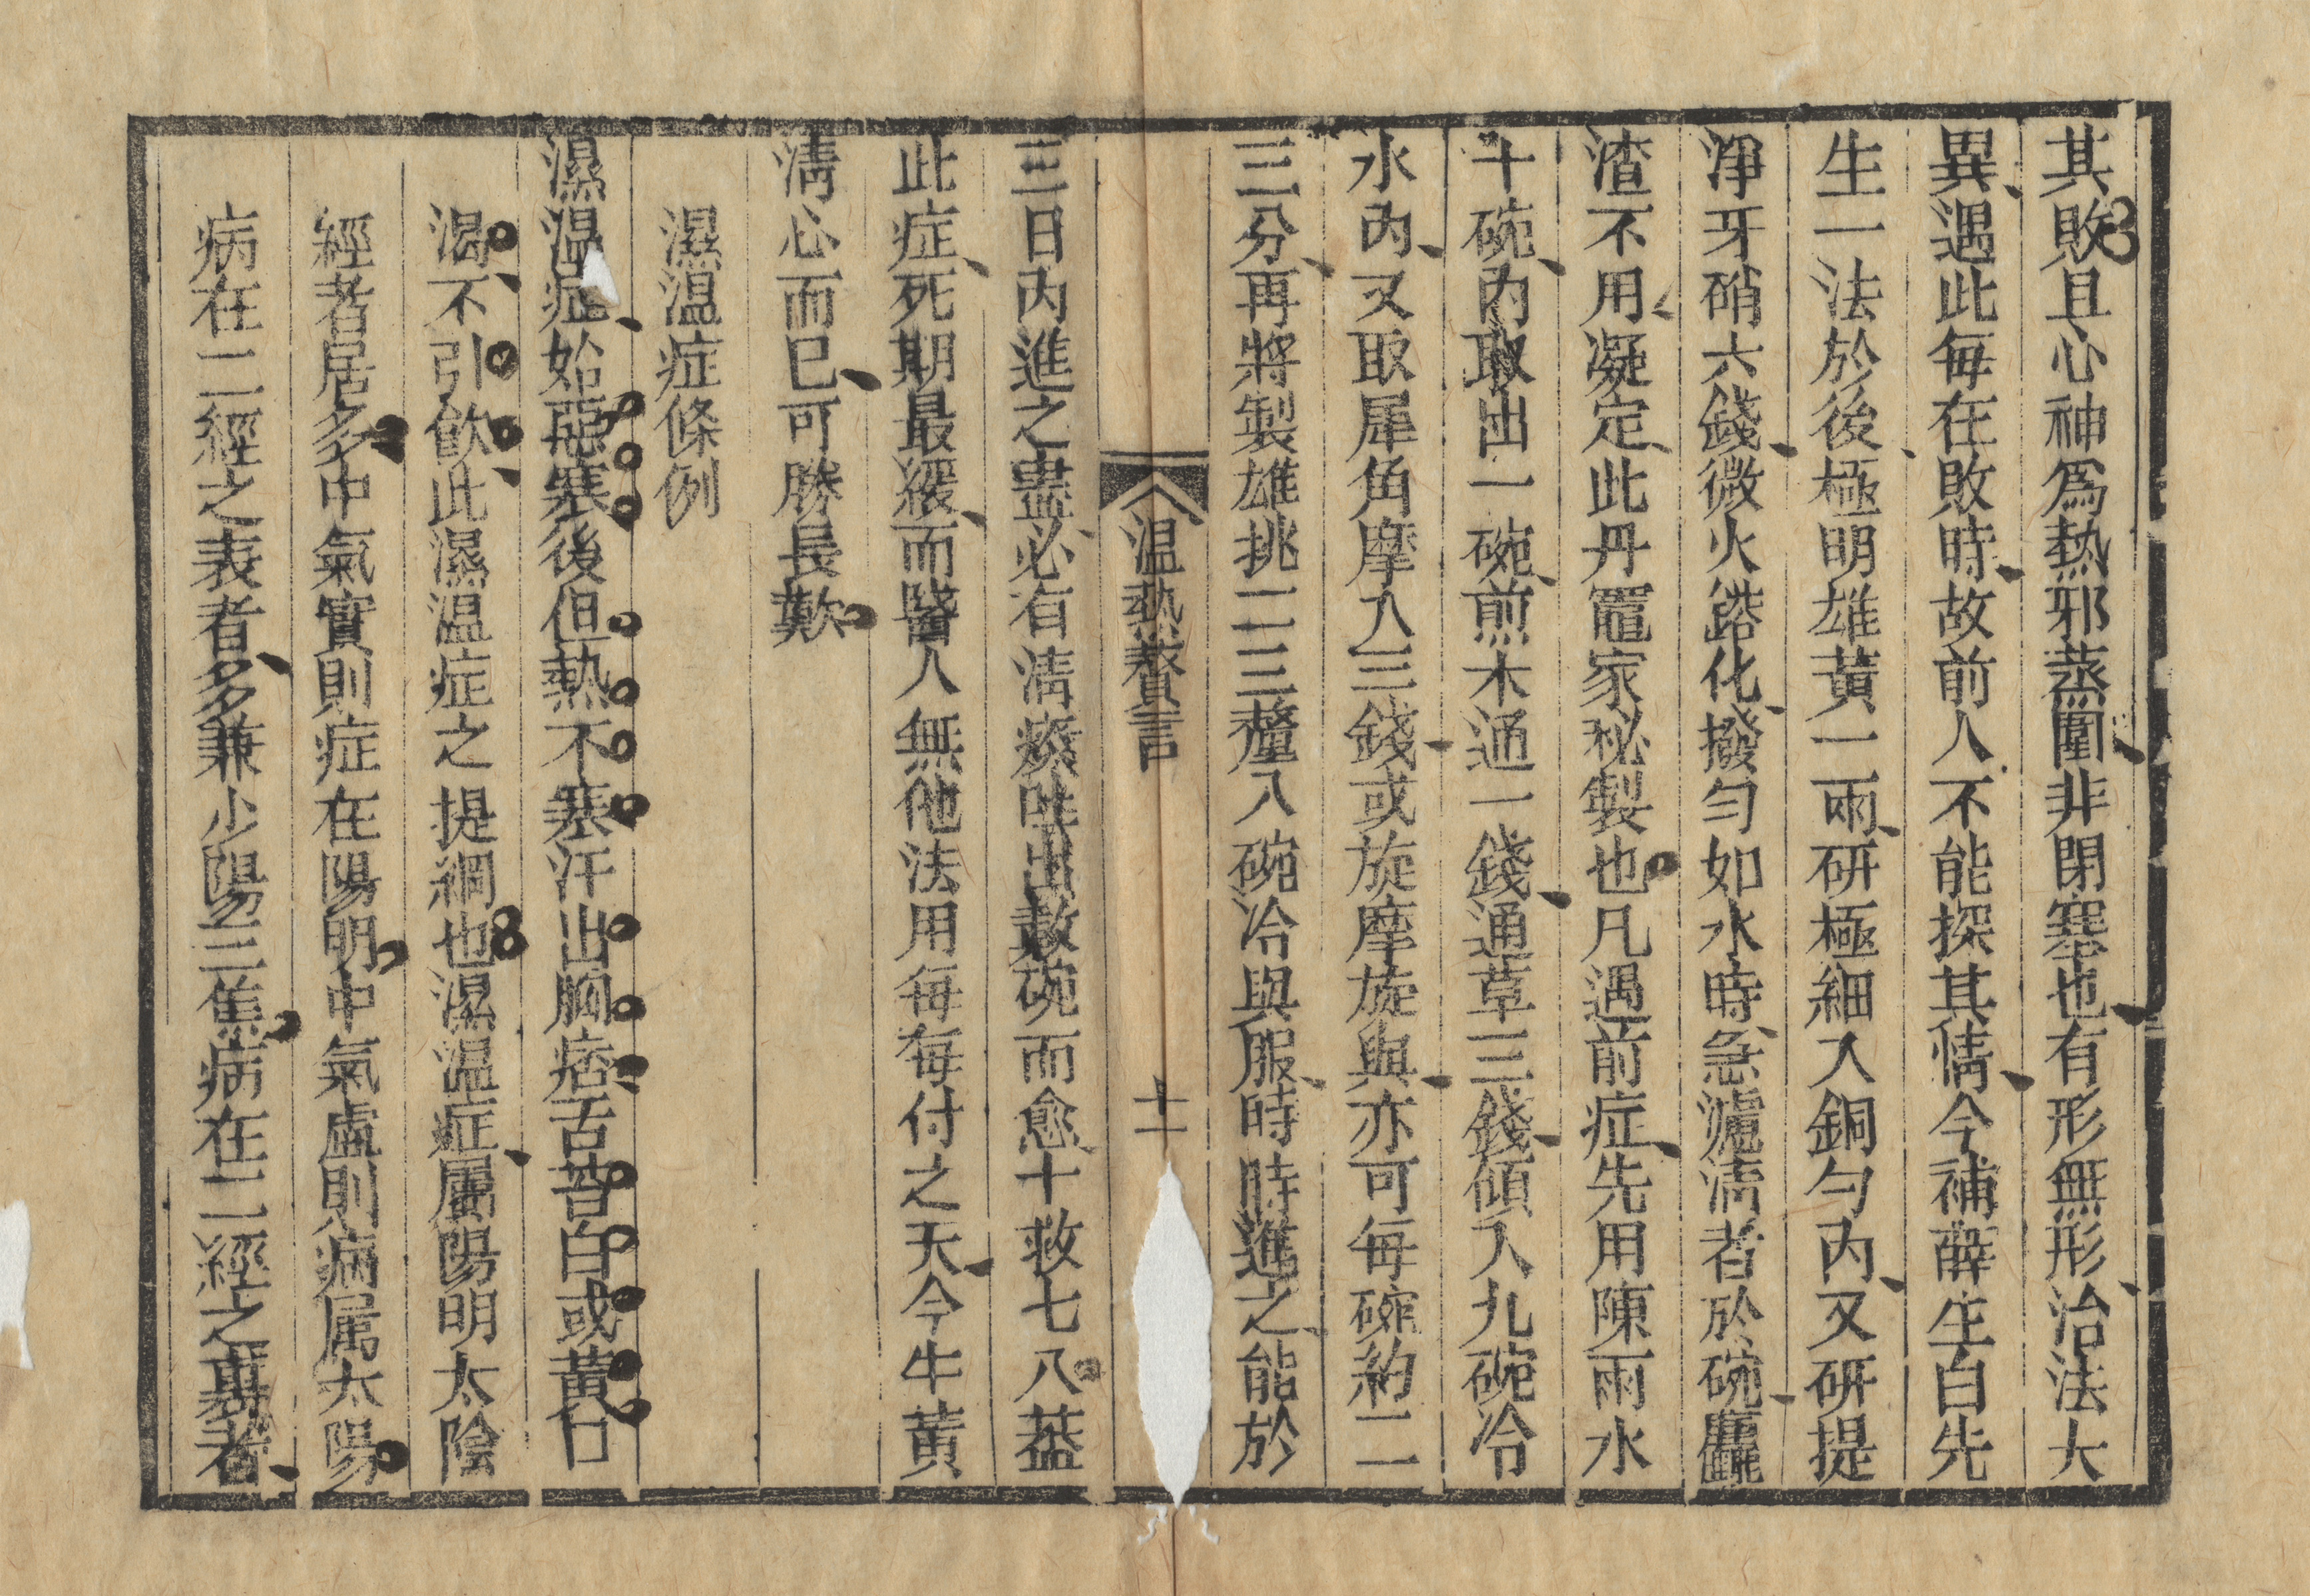 其敗且心神爲熱邪蒸圍非閉塞也有形無形治法大
異遇此每在敗時故前人不能探其情今補薛生白先
生一法於後極明雄黃一兩研極細入銅勺內又研提
淨牙硝六錢微火鎔化撥勻如水時急濾清者於碗麤
渣不用凝定此丹竈家秘製也凡遇前症先用陳雨水
十碗內取出一碗煎木通一錢通草三錢傾入九碗冷
水內又取犀角摩入三錢或旋摩旋與亦可每碗約二
三分再將製雄挑二三釐入碗冷與服時時進之能於
温熱贅言
十一
三日內進之盡必有清痰吐出數碗而愈十救七八蓋
此症死期最緩而醫人無他法用每每付之天今牛黃
清心而已可勝長歎
濕温症條例
濕温症始惡寒後但熱不寒汗出胸痞舌苔白或黃口
渴不引飲此濕温症之提綱也濕温症屬陽明太陰
經者居多中氣實則症在陽明中氣虛則病属太陽
病在二經之表者多兼少陽三焦病在二經之裏者